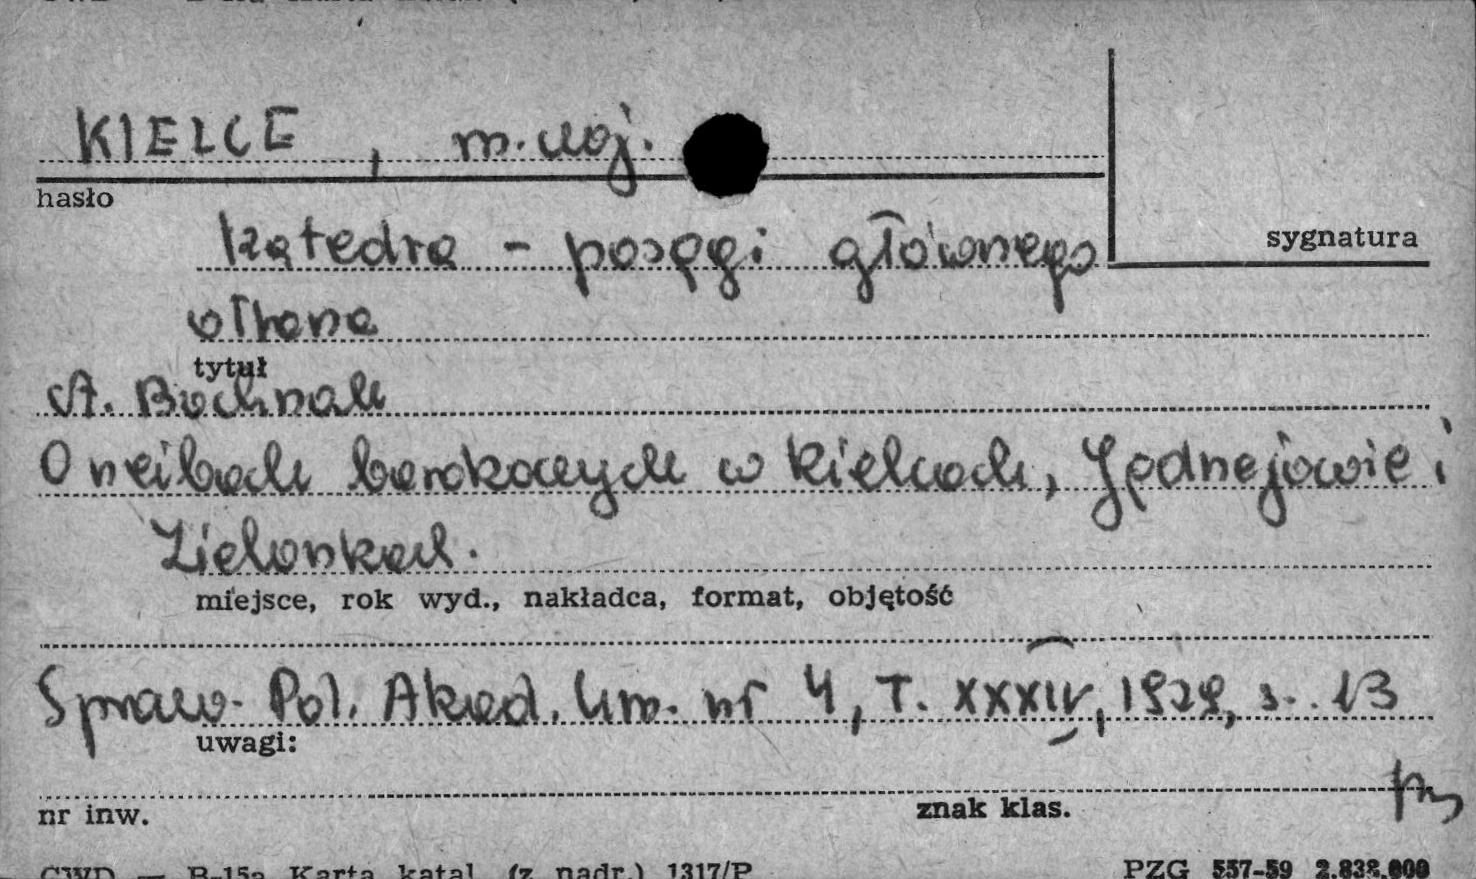 KIELCE, m. woj.
hasło
sygnatura
Katedra - posągi głównego
ołtarza
tytuł
A. Bochnak
O rzeźbach barokowych w Kielcach, Jędrzejowie i
Zielonkach.
miejsce, rok wyd., nakładca, format, objętość
Spraw. Pol. Akad. Um. nr 4, T. XXXIV, 1929, s. 13
uwagi:
nr inw.
znak klas.
CWD — B-15a Karta katal. (z nadr.) 1317/P
PZG 557-59 2.838.000